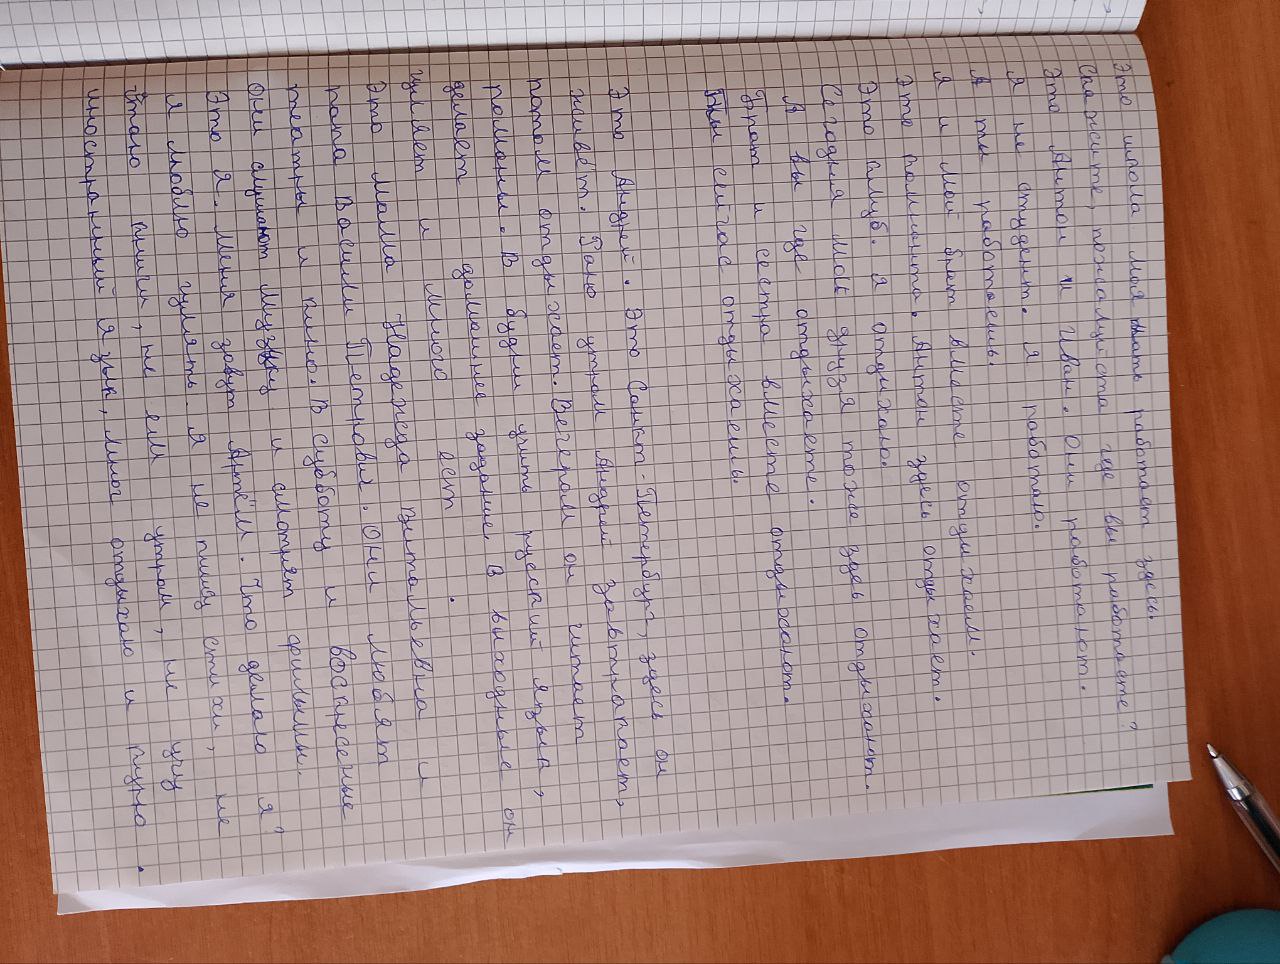 Это школа моя мать работает здесь.
Скажите, пожалуйста где вы работаете?
Это Антон и Иван. Они работают.
Я не студент. Я работаю.
А ты работаешь.
Я и мой брат вместе отдыхаем.
Это комната. Антон здесь отдыхает.
Это клуб. Я отдыхаю.
Сегодня мои друзя тоже здеь отдыхают.
А вы где отдыхаете.
Брат и сестра вместе отдыхают.
Ты сейчас отдыхаешь.
Это Андрей. Это Санкт-Петербург, здесь он
живёт. Рано утром Андрей завтракает,
потом отдыхает. Вечером он читает
романы. В будни учить руский язык,
делает домашнее задание. В выходные он
гуляет и много ест.
Это мама Надежда Витальевна и
папа Василий Петрович. Они любят
театры и кино. В субботу и воскресенье
они слушают музыку и смотрят фильмы.
Это я. Меня зовут Артём. Что делаю я?
Я люблю гулять. Я не пишу стихи, не
читаю книги, не ем утром, не учу
иностранный язык, мног отдыхаю и гуляю.